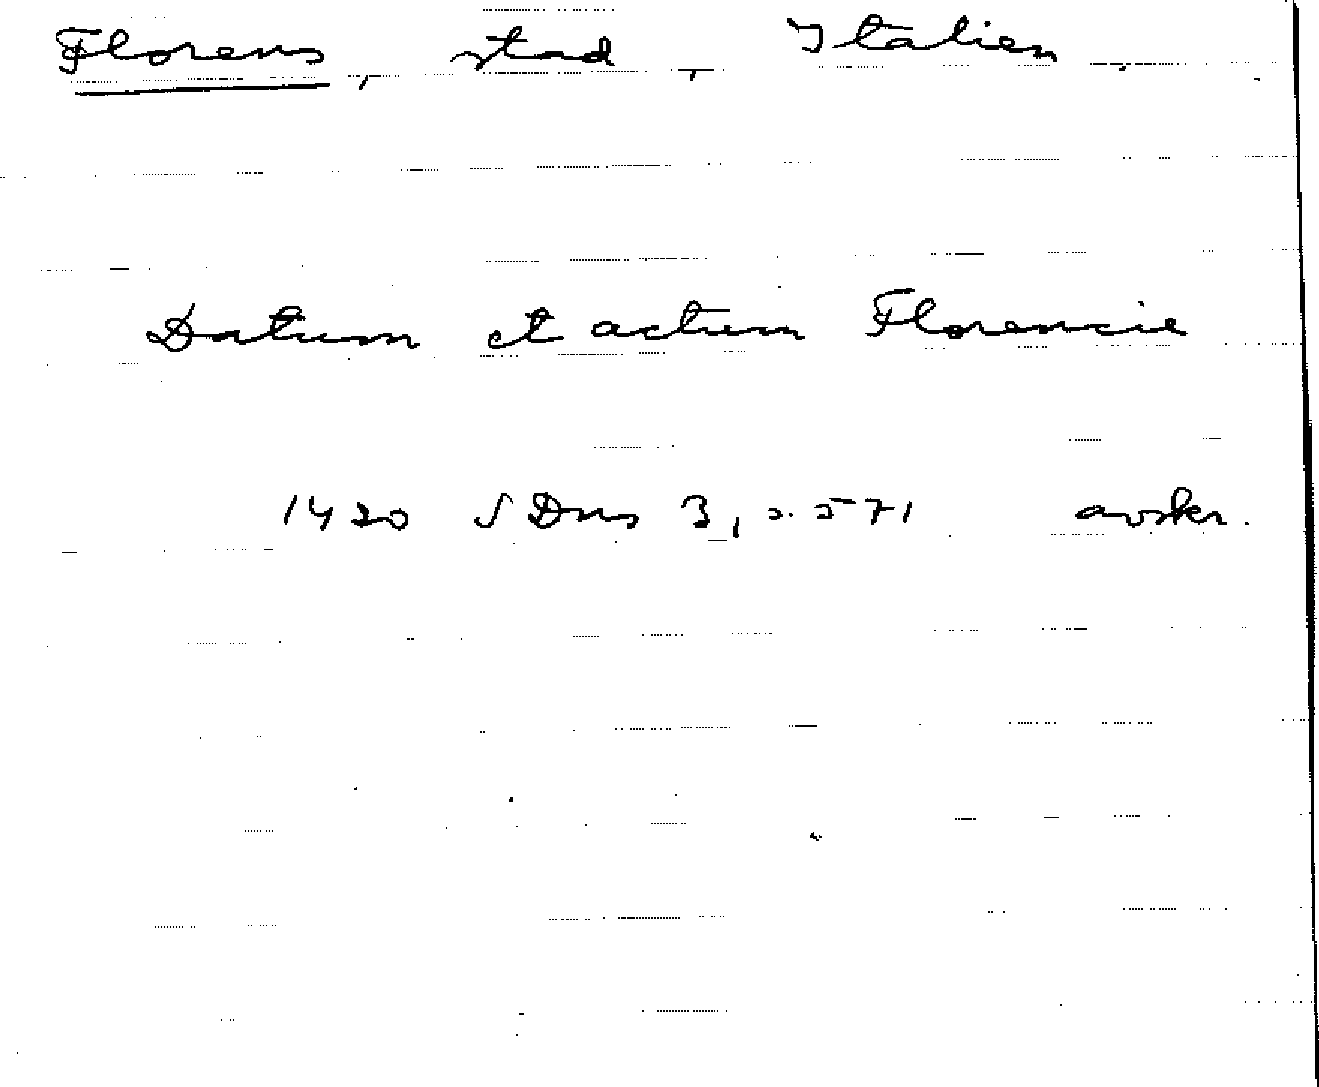 Florens, stad, Italien,
Datum et actum Florencie
1420 SDns 3, s. 571 avskr.